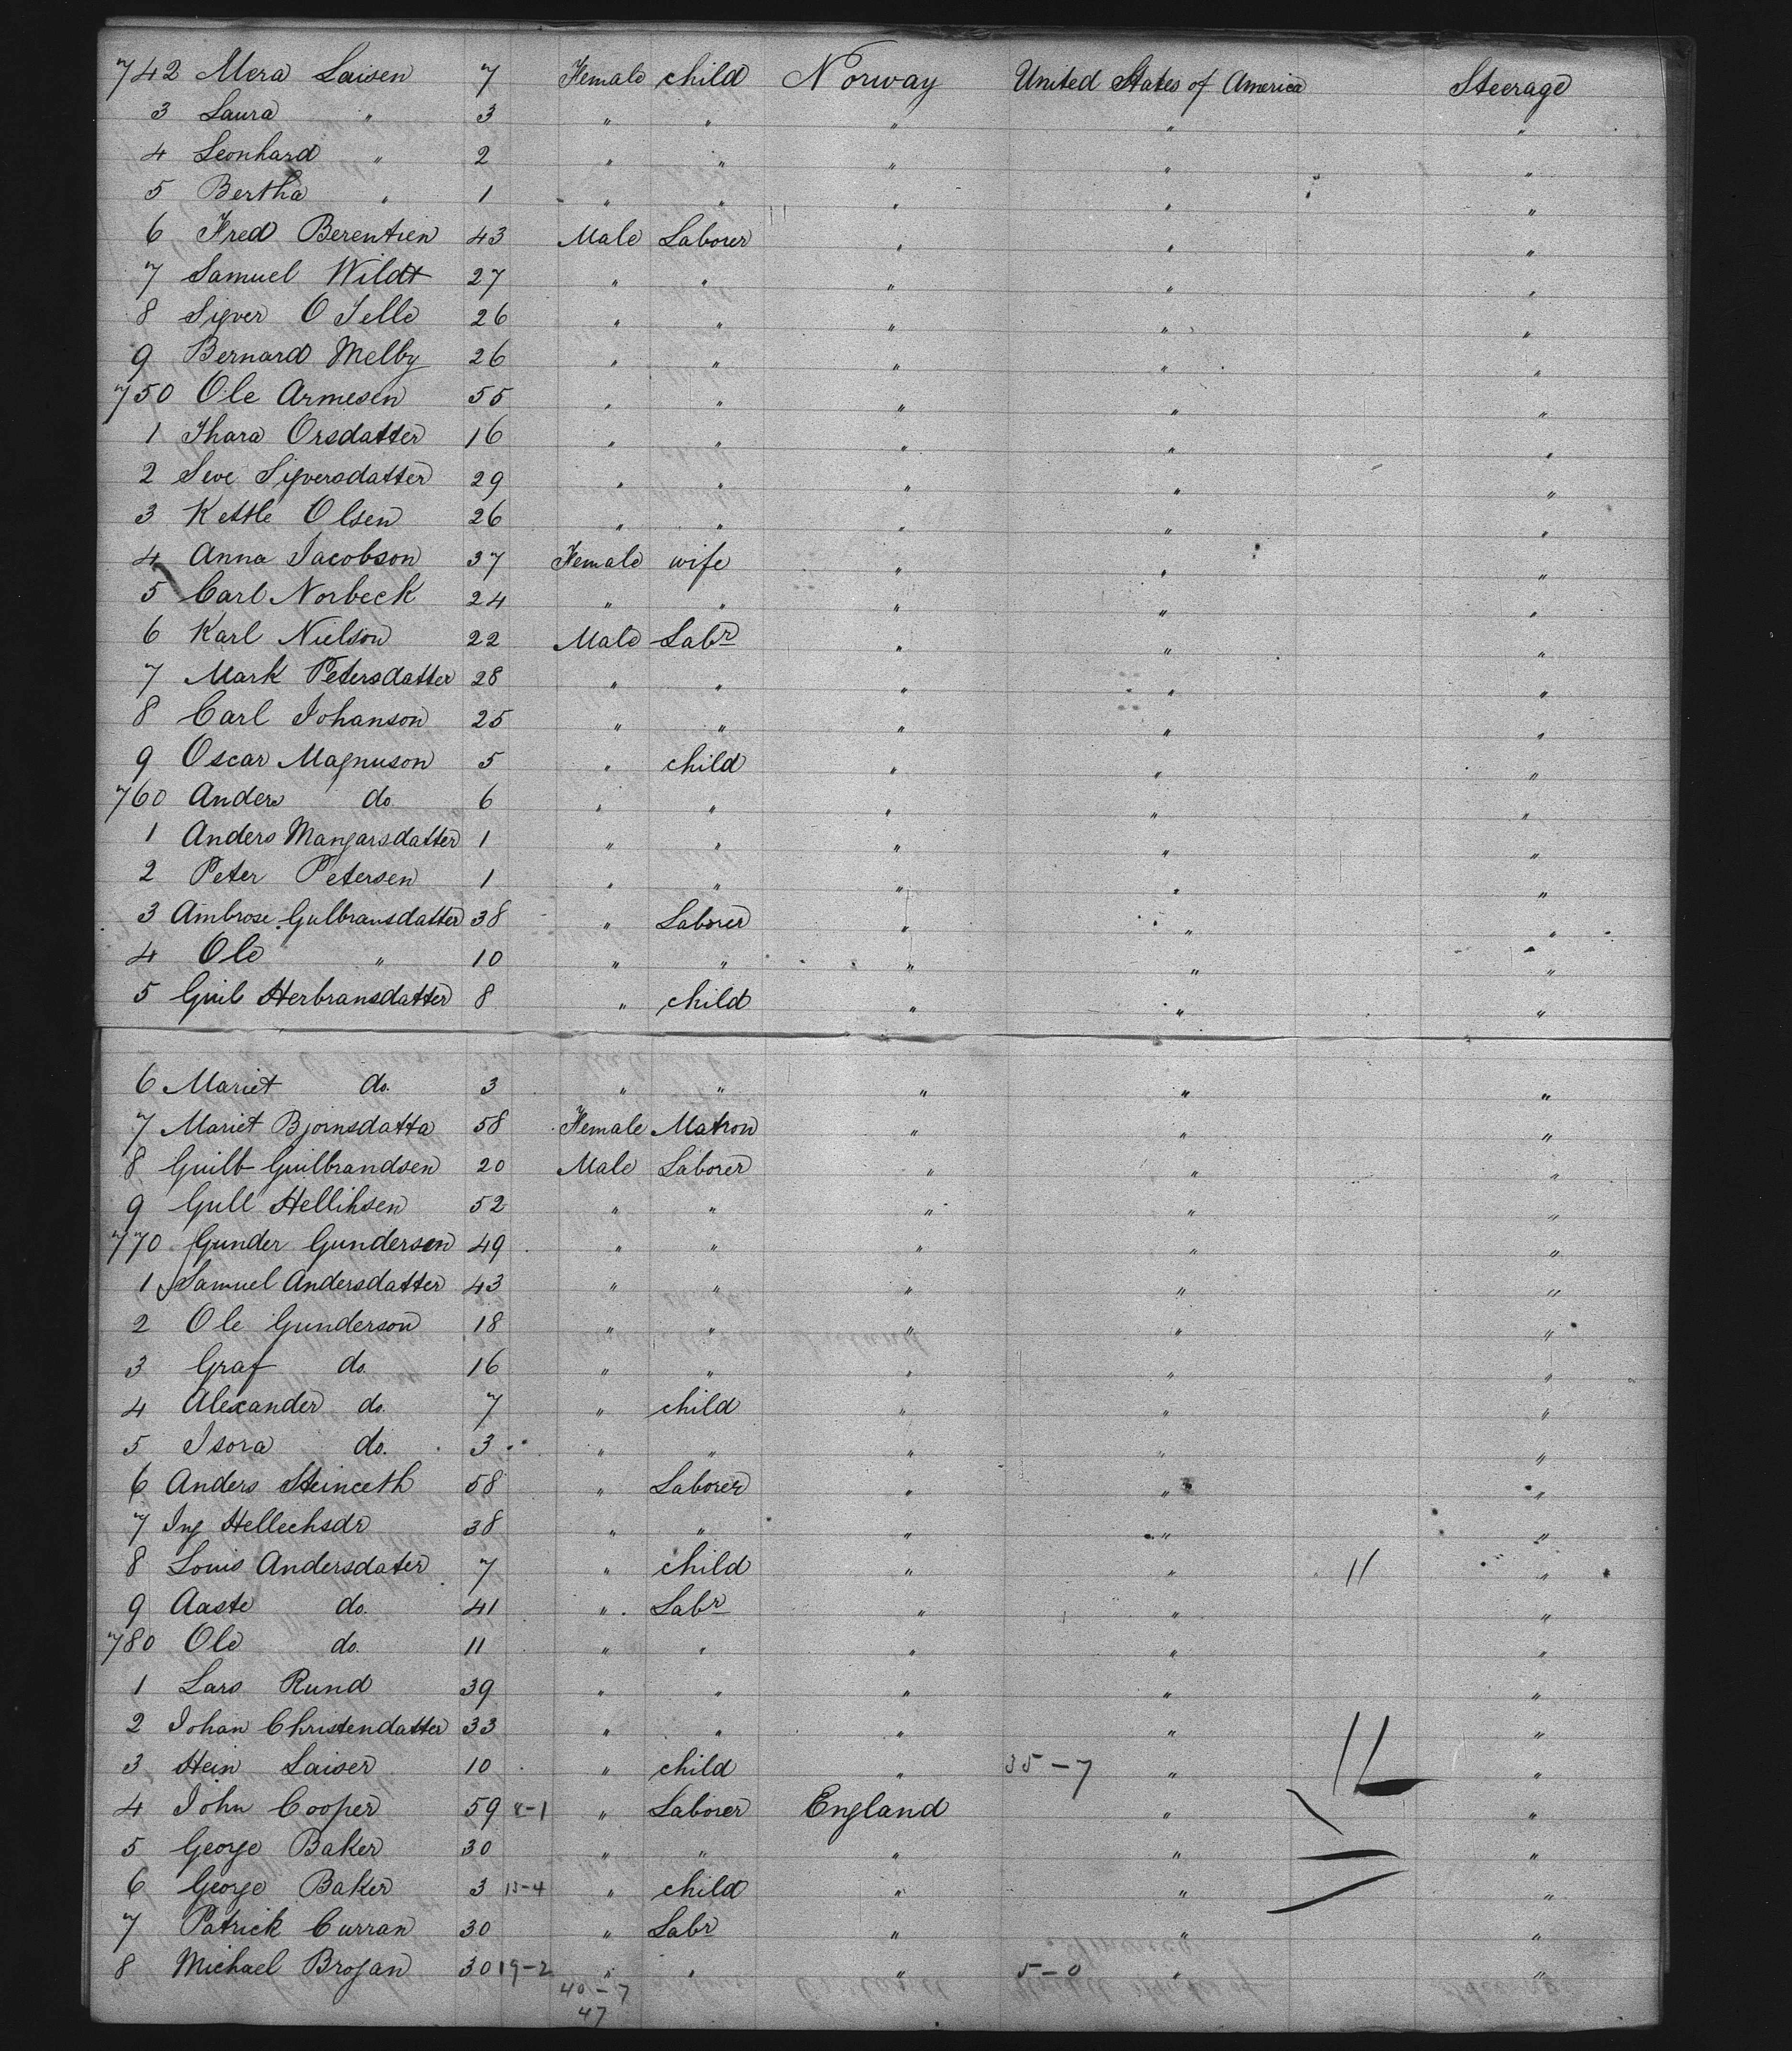 742 Mera Laisen 7 Female child Norway United States of America Steerage
3 Laura " 3 " " " " "
4 Leonhard " 2 " " " " "
5 Bertha " 1 " " " " "
6 Fred Berentien 43 Male Laborer " " "
7 Samuel Wildt 27 " " " " "
8 Syver O Selle 26 " " " " "
9 Bernard Melby 26 " " " " "
750 Ole Armesen 55 " " " " "
1 Thara Orsdatter 16 " " " " "
2 Seve Syversdatter 29 " " " " "
3 Kettle Olsen 26 " " " " "
4 Anna Jacobson 37 Female wife " " "
5 Carl Norbeck 24 " " " " "
6 Karl Nielson 22 Male Labr " " "
7 Mark Petersdatter 28 " " " " "
8 Carl Johanson 25 " " " " "
9 Oscar Magnuson 5 " child " " "
760 Anders do. 6 " " " " "
1 Anders Mangarsdatter 1 " " " " "
2 Peter Petersen 1 " " " " "
3 Ambrose Gulbransdatter 38 " Laborer " " "
4 Ole " 10 " " " " "
5 Guil Herbransdatter 8 " child " " "
6 Mariet do. 3 " " " " "
7 Mariet Bjornsdatta 58 Female Matron " " "
8 Guilb Guilbrandsen 20 Male Laborer " " "
9 Gull Hellihsen 52 " " " " "
770 Gunder Gundersen 49 " " " " "
1 Samuel Andersdatter 43 " " " " "
2 Ole Gunderson 18 " " " " "
3 Graf do. 16 " " " " "
4 Alexander do. 7 " child " " "
5 Isora do. 3 " " " " "
6 Anders Steinceth 58 " Laborer " " "
7 Ing Hellechsdr 38 " " " " "
8 Louis Andersdater 7 " child " " 11 "
9 Aaste do. 41 " Labr " " "
780 Ole do. 11 " " " " "
1 Lars Rund 39 " " " " "
2 Johan Christendatter 33 " " " " "
3 Hein Laiser 10 " child " 35-7 " 11 "
4 John Cooper 59 8-1 " Laborer England " "
5 George Baker 30 " " " " "
6 George Baker 3 13-4 " child " " "
7 Patrick Curran 30 " Labr " " "
8 Michael Brogan 30 19-2 " " " 5-0 " "
40-7
47